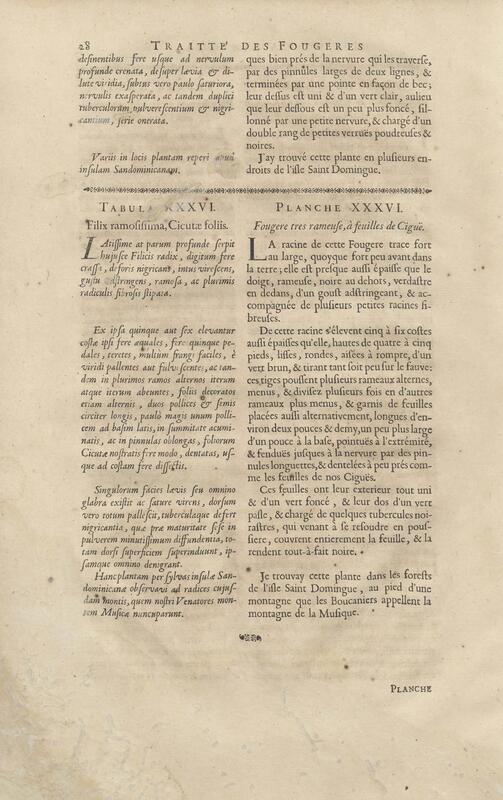 28 TRAITTÉ DES FOUGERES
desinentibus fere usque ad nervulum
profunde crenata, desuper lævia & di-
lute viridia, subtus vero paulo saturiora,
nervulis exasperata, ac tandem duplici
tuberculorum pulverescentium & nigri-
cantium, serie onerata.
Variis in locis plantam reperi apud
insulam Sandominicanam.
ques bien prés de la nervure qui les traverse,
par des pinnules larges de deux lignes, &
terminées par une pointe en façon de bec;
leur dessus est uni & d'un vert clair, aulieu
que leur dessous est un peu plus foncé, sil-
lonné par une petite nervure, & chargé d'un
double rang de petites verruës poudreuses &
noires.
J'ay trouvé cette plante en plusieurs en-
droits de l'isle Saint Domingue.
TABULA XXXVI.
Filix ramosissima, Cicutæ foliis.
LAtissime at parum profunde serpit
hujusce Filicis radix, digitum fere
crassa, deforis nigricans, intus virescens,
gustu adstringens, ramosa, ac plurimis
radiculis fibrosis stipata.
Ex ipsa quinque aut sex elevantur
costæ ipsi fere æquales, fere quinque pe-
dales, teretes, multum frangi faciles, è
viridi pallentes aut fulvescentes, ac tan-
dem in plurimos ramos alternos iterum
atque iterum abeuntes, foliis decoratos
etiam alternis, duos pollices & semis
circiter longis, paulò magis unum polli-
cem ad basim latis, in summitate acumi-
natis, ac in pinnulas oblongas, foliorum
Cicutæ nostratis fire modo, dentatas, us-
que ad costam fere dissectis.
Singulorum facies lævis seu omnino
glabra existit ac sature virens, dorsum
vero totum pallescit, tuberculaque defert
nigricantia, quæ præ maturitate sese in
pulverem minutissimum diffundentia, to-
tam dorsi superficiem superinduunt, ip-
samque omnino denigrant.
Hanc plantam per sylvas insulæ San-
dominicanæ observavi ad radices cujus-
dam montis, quem nostri Venatores mon-
tem Musicæ nuncuparunt.
PLANCHE XXXVI.
Fougere tres rameuse, à feuilles de Ciguë.
LA racine de cette Fougere trace fort
au large, quoyque fort peu avant dans
la terre; elle est presque aussi épaisse que le
doigt, rameuse, noire au dehors, verdastre
en dedans, d'un goust adstringeant, & ac-
compagnée de plusieurs petites racines fi-
breuses.
De cette racine s'élevent cinq à six costes
aussi épaisses qu'elle, hautes de quatre à cinq
pieds, lisses, rondes, aisées à rompre, d'un
vert brun, & tirant tant soit peu sur le fauve:
ces tiges poussent plusieurs rameaux alternes,
menus, & divisez plusieurs fois en d'autres
rameaux plus menus, & garnis de feuilles
placées aussi alternativement, longues d'en-
viron deux pouces & demy, un peu plus large
d'un pouce à la base, pointuës à l'extrémité,
& fenduës jusques à la nervure par des pin-
nules longuettes, & dentelées à peu prés com-
me les feuilles de nos Ciguës.
Ces feuilles ont leur exterieur tout uni
& d'un vert foncé, & leur dos d'un vert
pasle, & chargé de quelques tubercules noi-
rastres, qui venant à se resoudre en pous-
siere, couvrent entierement la feuille, & la
rendent tout-à-fait noire.
Je trouvay cette plante dans les forests
de l'isle Saint Domingue, au pied d'une
montagne que les Boucaniers appellent la
montagne de la Musique.
PLANCHE